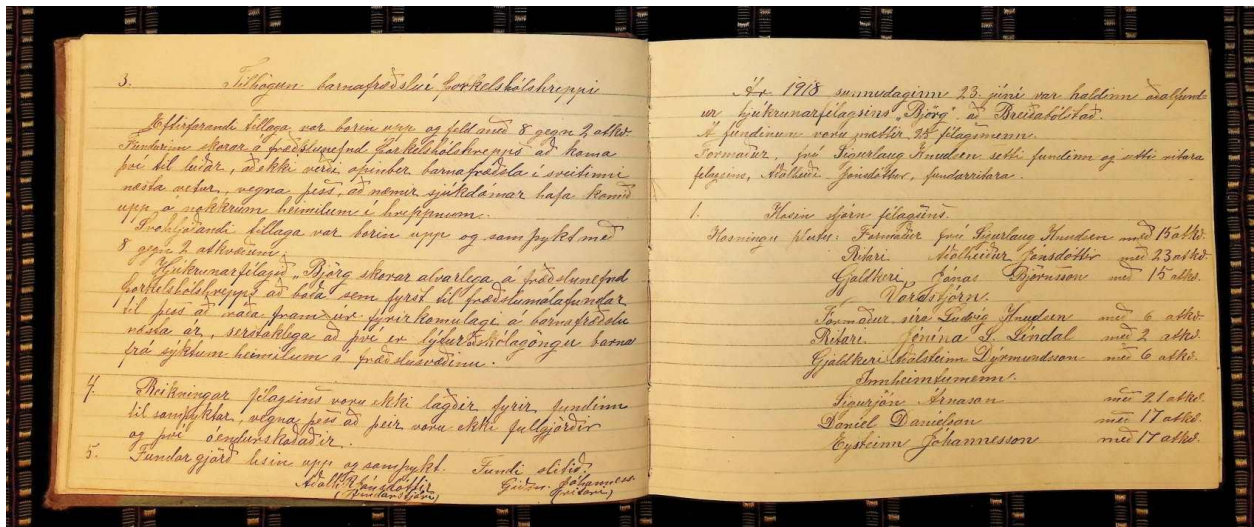 3. Tilhögun barnafræðslu í Þorkelshólshreppi
Eftirfarandi tillaga var borin upp og feld með 8 gegn 2 atkv.
Fundurinn skorar á fræðslunefnd Þorkelshólshrepps að koma
því til leiðar, að ekki verði opinber barnafræðsla í sveitinni
næsta vetur, vegna þess, að næmir sjúkdómar hafa komið
upp á nokkrum heimilum í hreppnum.
Svohljóðandi tillaga var borin upp og samþykt með
8 gegn 2 atkvæðum.
Hjúkrunarfélagið „Björg skorar alvarlega á fræðslunefnd
Þorkelshólshrepps að boða sem fyrst til fræðslumálafundar
til þess að ráða fram úr fyrirkomulagi á barnafræðslu
næsta ár, sérstaklega að því er lýtur að skólagöngu barna
frá sýktum heimilum á fræðslusvæðinu.
4. Reikningar félagsins voru ekki lagðir fyrir fundinn
til samþyktar, vegna þess að þeir voru ekki fullgjörðir
og því óendurskoðaðir.
5. Fundargjörð lesin upp og samþykt. Fundi slitið.
Aðalh. R. Jónsdóttir Guðm. Jóhanness.
(fundarstjóri) (ritari)
Ár 1918 sunnudaginn 23. júní var haldinn aðalfund-
ur hjúkrunarfélagsins „Björg“ að Breiðabólstað.
Á fundinum voru mættir 28 félagsmenn.
Formaður, frú Sigurlaug Knudsen setti fundinn og setti ritara
félagsins, Aðalheiði Jónsdóttur, fundarritara.
1. Kosin stjórn félagsins.
Kosningu hlutu: Formaður frú Sigurlaug Knudsen með 15 atkv.
Ritari Aðalheiður Jónsdóttir með 23 atkv.
Gjaldkeri Jónas Björnsson með 15 atkv.
Varastjórn.
Formaður séra Ludvig Knudsen með 6 atkv.
Ritari. Jónína S. Líndal með 2 atkv.
Gjaldkeri Aðalsteinn Dýrmundsson með 6 atkv.
Innheimtumenn.
Sigurjón Árnason með 21 atkv.
Daníel Daníelson með 17 atkv.
Eysteinn Jóhannesson með 17 atkv.